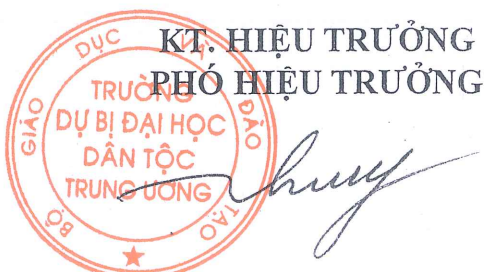 KT. HIỆU TRƯỞNG
PHÓ HIỆU TRƯỞNG
BỘ GIÁO DỤC VÀ ĐÀO TẠO
TRƯỜNG
DỰ BỊ ĐẠI HỌC
DÂN TỘC
TRUNG ƯƠNG